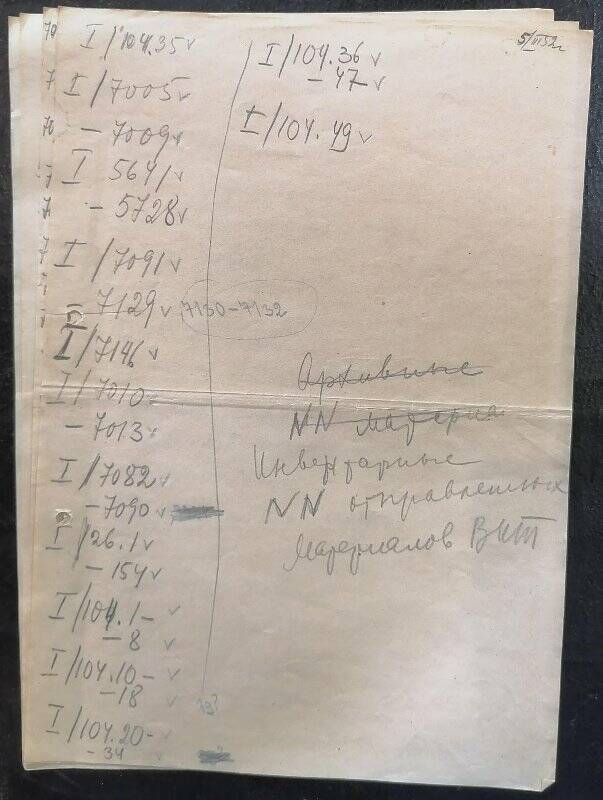 5/VI 52г
I/104.35 v
I/7005 v
– 7009 v
I 5641 v
– 5728 v
I/7091 v
– 7129 v 7130–7132
I/7146 v
I/7010
– 7013 v
I/7082 v
– 7090 v
I/26.1 v
– 154 v
I/104.1– v
– 8 v
I/104.10– v
– 18 v
19?
I/104.20–
– 34 v
I/104.36 v
– 47 v
I/104.49 v
Архивные
NN материа
Инвентарные
NN отправленных
материалов